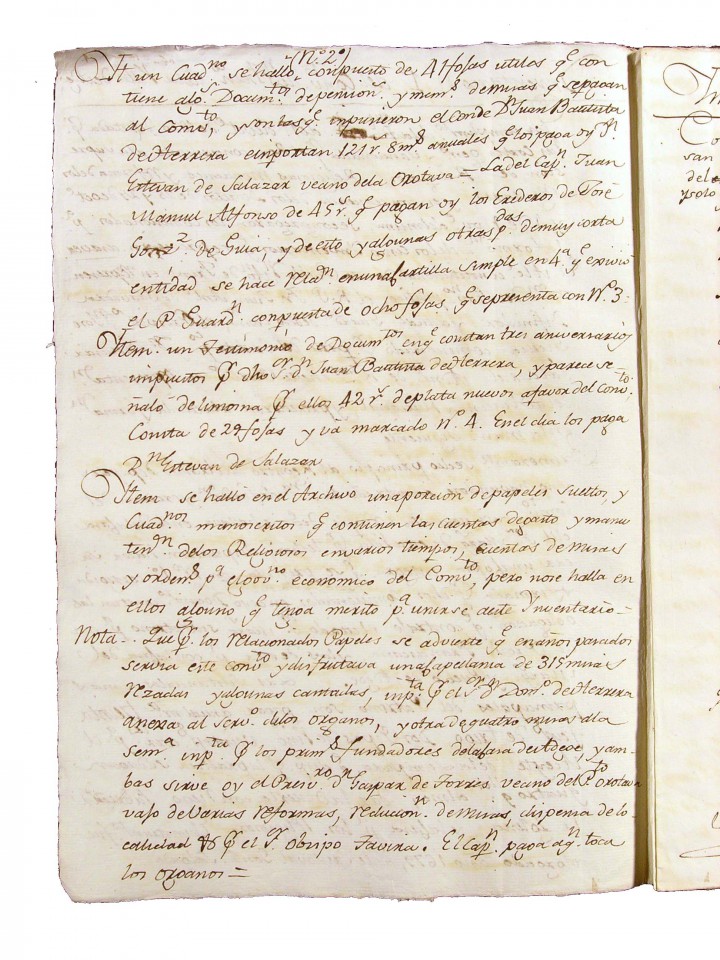 (N.º 2º
It un Cuad.no se halló conpuesto de 41 fojas utiles q.e con
tiene alg.s Docum.tos de pension.s y mem.s de misas q.e se pagan
al Comv.to, y son las q.e impusieron el Conde D.n Juan Bautista
de Herrera e inportan 121 r.s 8 m.s anuales q.e los paga oy
Estevan de Salazar vecino dela Orotava = La del Cap.n Juan
Manuel Alfonso de 45 r.s q.e pagan oy los Erederos de José
Gonz.z de Guia, y de esto y algunas otras p.das de muy corta
entidad se hace relaz.n en una Cartilla simple en 4.ª q.e exivió
el P. Guard.n conpuesta de ocho fojas q.e se presenta con N.º 3.
Ytem. un Testimonio de Docum.tos en q.e constan tres aniversarios
impuestos p.r dho S.or D.n Juan Bautista de Herrera, y parece se-
ñaló de limosna p.r ellos 42 r.s de plata nuevos a favor del Conv.to
Consta de 29 fojas y vá marcado n.º 4. En el dia los paga
D.n Estevan de Salazar
Ytem se halló en el Archivo una porcion de papeles sueltos, y
Cuad.nos manoscritos q.e contienen las cuentas de gasto y manu
tenz.n delos Religiosos en varios tiempos, cuentas de misas
y orden.s p.ª el gov.no economico del Comv.to, pero no se halla en
ellos alguno q.e tenga merito p.ª unirse a este Ynventario =
Nota - . Que p.r los relacionados Papeles se advierte q.e en años pasados
servia este conv.to y disfrutava una Capellania de 315 misas
rezadas y algunas cantadas, inp.ta p.r el S.or D.n Dom.º de Herrera
anexa al serv.º delos organos, y otra de quatro misas ala
sem.ª inp.ta p.r los prim.s fundadores dela Casa de Adege, y am-
bas sirve oy el Presv.ro d.n Gaspar de Torres vecino del P.to Orotava
vajo de varias reformas, reducion.n de Misas, dispensa de lo-
calidad &c p.r el S.r Obispo Tavira. El Cap.n paga aq.n toca
los organos =